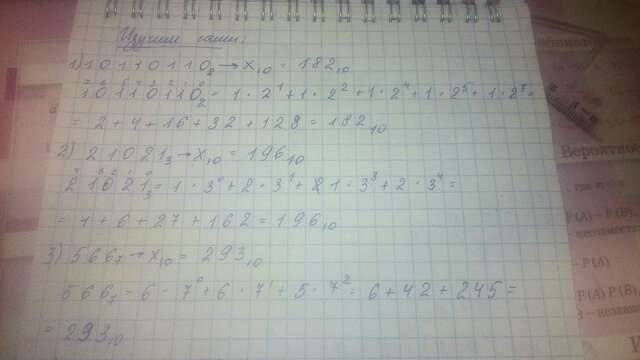 Изучим сами:
1) 10110110₂ → X₁₀ = 182₁₀
7 6 5 4 3 2 1 0
10110110₂ = 1 · 2¹ + 1 · 2² + 1 · 2⁴ + 1 · 2⁵ + 1 · 2⁷ =
= 2 + 4 + 16 + 32 + 128 = 182₁₀
2) 21021₃ → X₁₀ = 196₁₀
4 3 2 1 0
21021₃ = 1 · 3⁰ + 2 · 3¹ + 1 · 3³ + 2 · 3⁴ =
= 1 + 6 + 27 + 162 = 196₁₀
3) 566₇ → X₁₀ = 293₁₀
566₇ = 6 · 7⁰ + 6 · 7¹ + 5 · 7² = 6 + 42 + 245 =
= 293₁₀
Вероятно
P(A) – P(B)
P(A)
P(A) P(B)